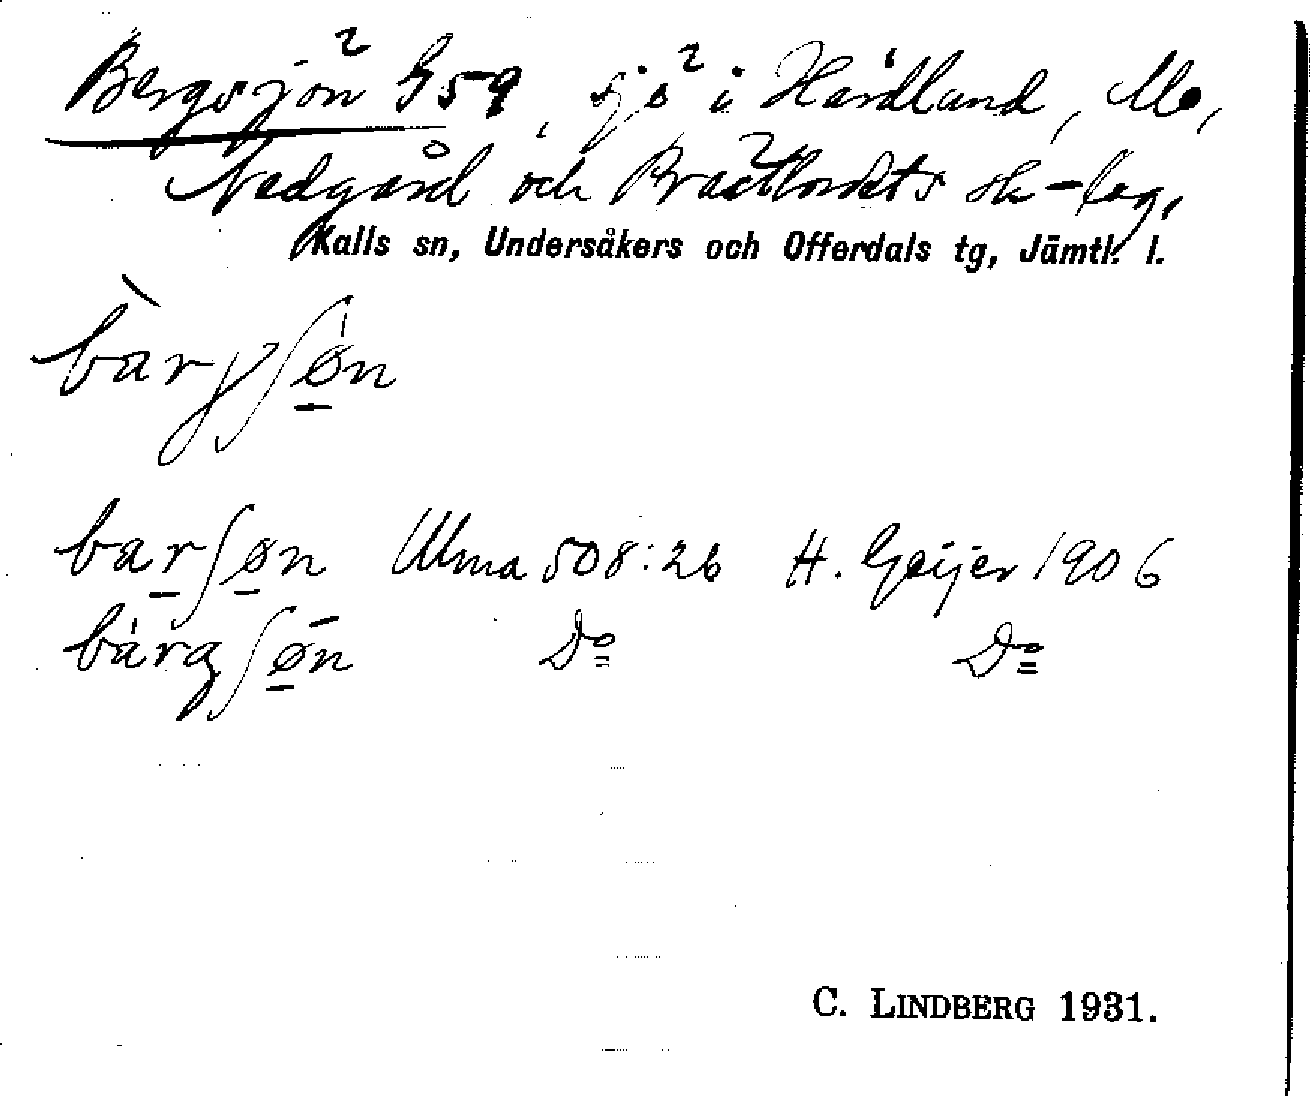 Bergsjön G59, sjö i Hårdland, Mo,
Nedgård och sk-lag,
Kalls sn, Undersåkers och Offerdals tg, Jämtl. l.
barſøn Ulma 508:26 H. Geijer 1906
D:o D:o
C. LINDBERG 1931.